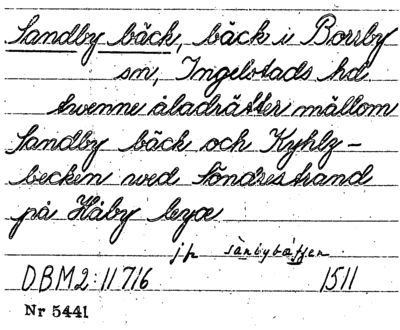 Sandby bäck, bäck i Borrby
sn, Ingelstads hd.
twenne åladrätter mällom
Sandby bäck och Kyhlz-
becken wed Söndrestrand
på Håby
jfr
DBM2:11716 1511
Nr 5441